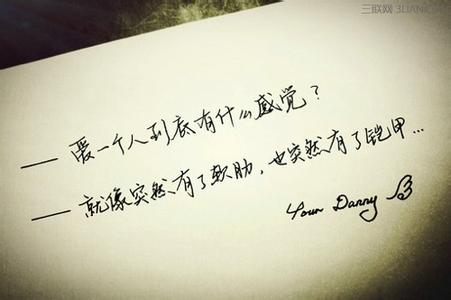 三联网 3LIAN.COM
—— 爱一个人到底有什么感觉？
—— 就像突然有了软肋，也突然有了铠甲...
Your Danny